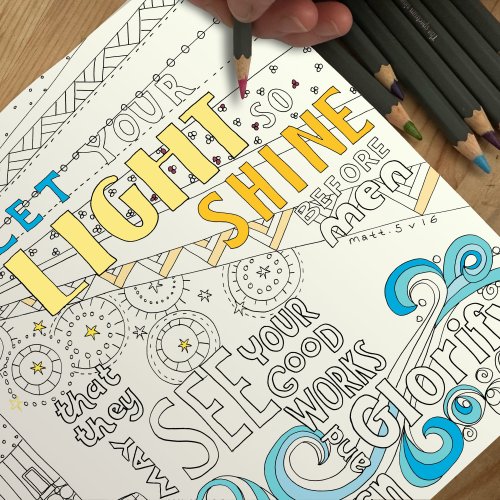 LET YOUR
LIGHT SO
SHINE
BEFORE
men
matt. 5 v 16
that
they
MAY
SEE
YOUR
GOOD
WORKS
and